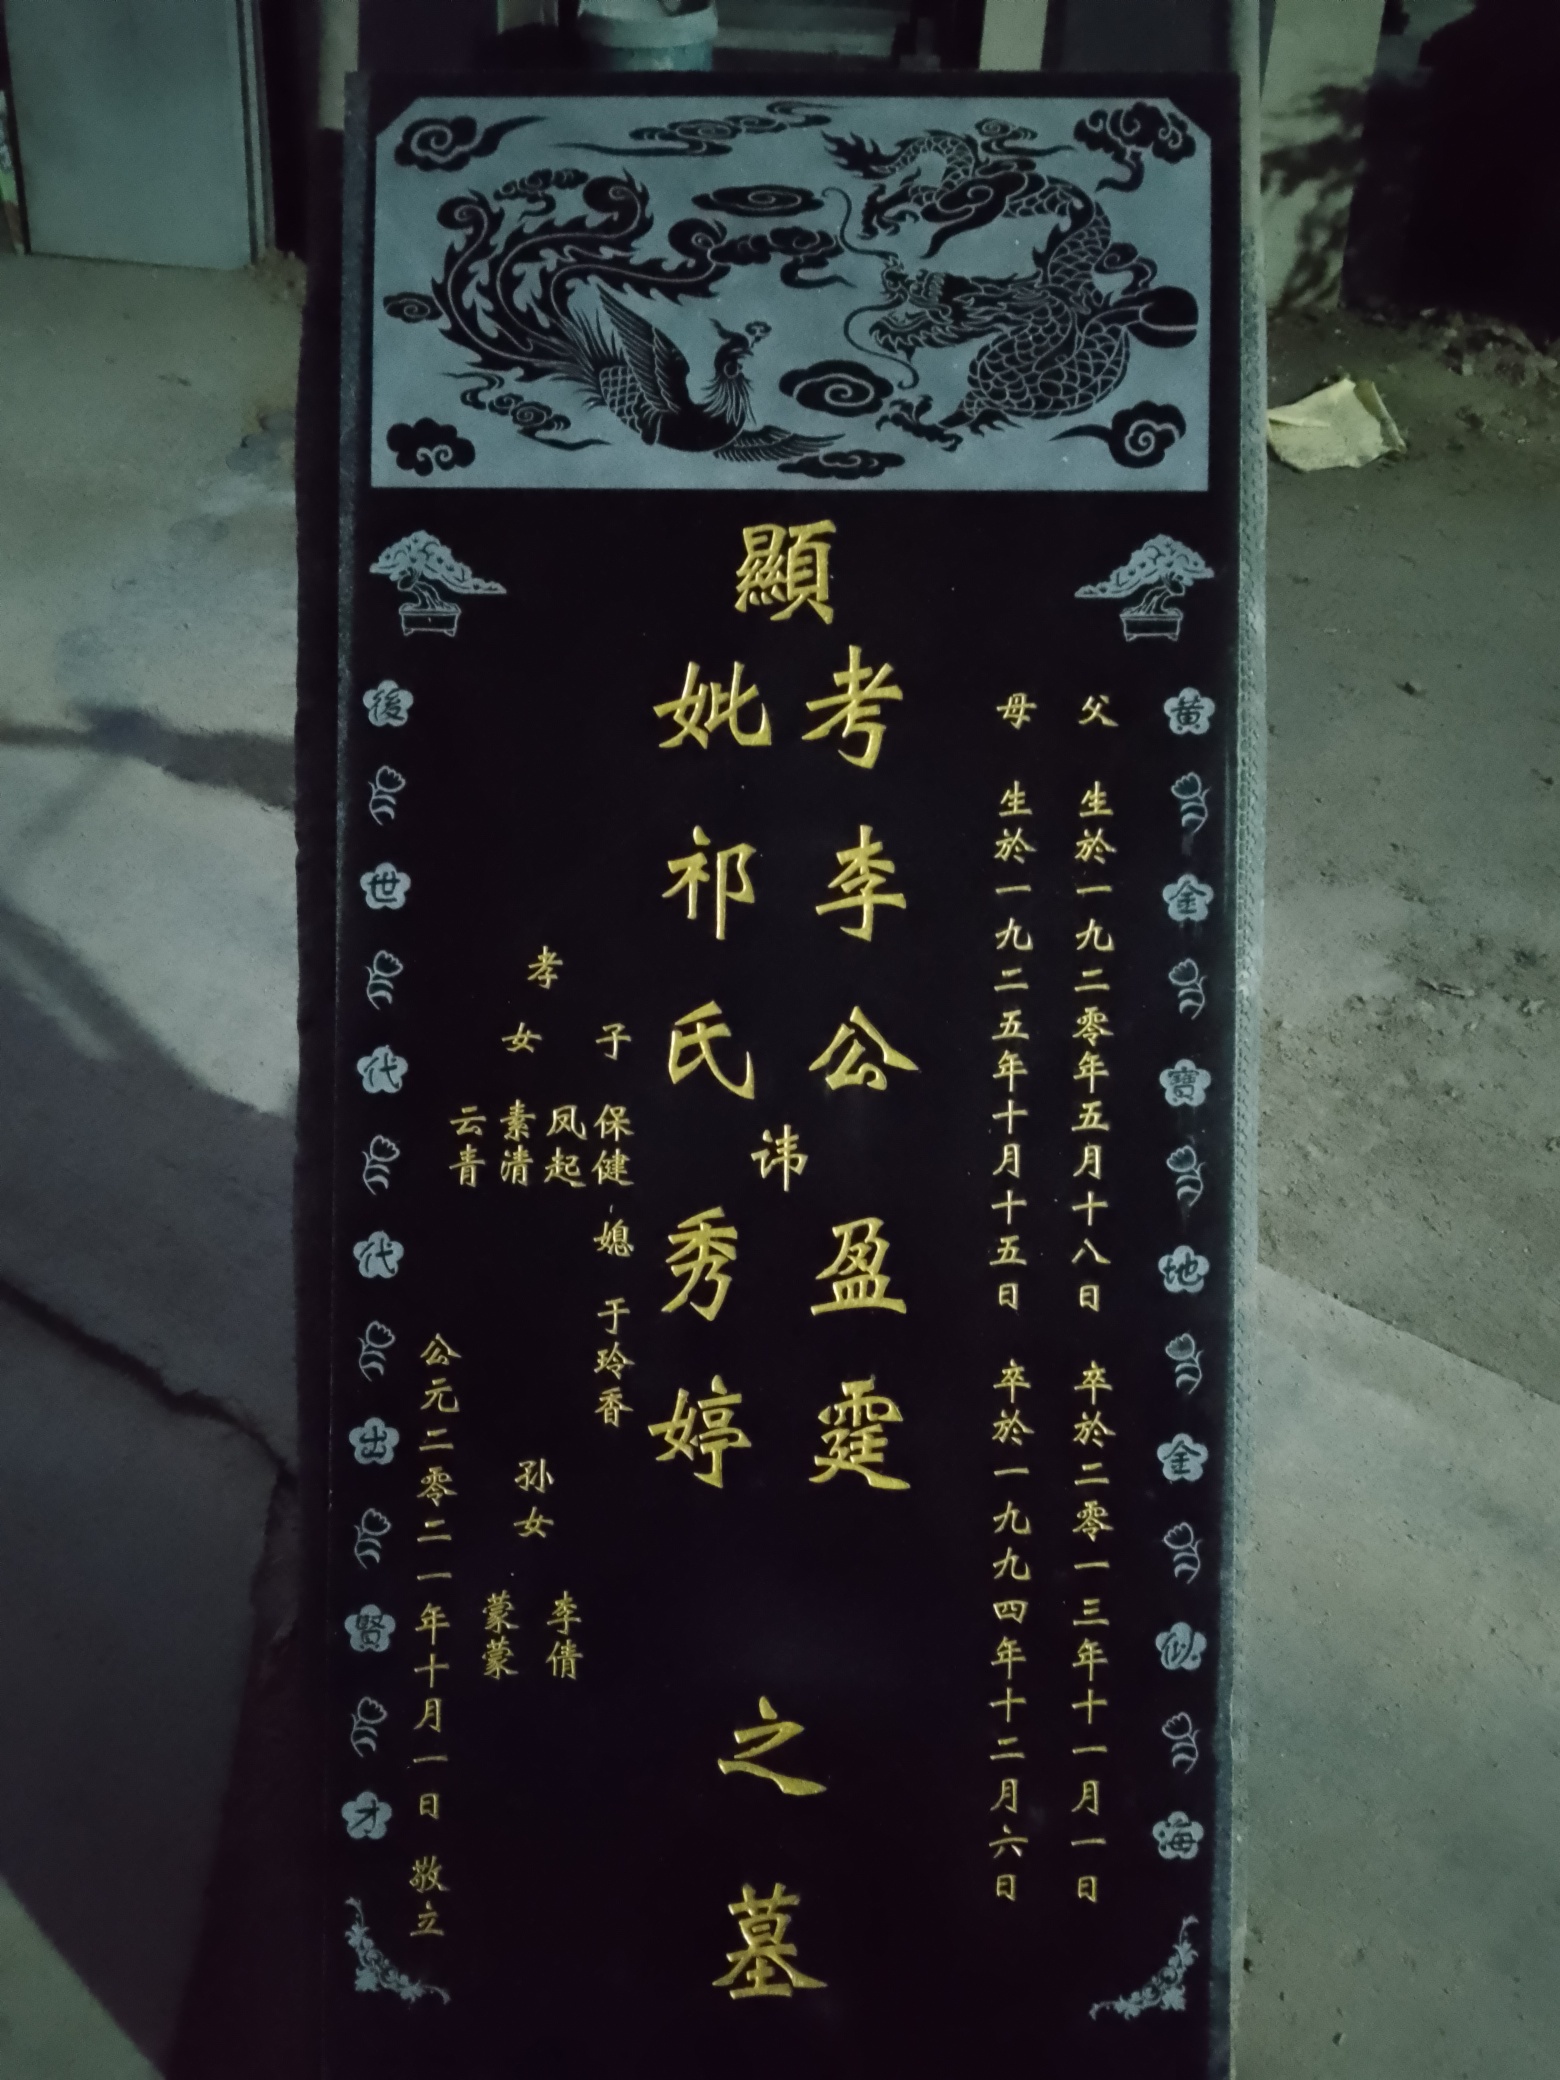 黄金寶地金似海
父 生於一九二零年五月十八日 卒於二零一三年十一月一日
母 生於一九二五年十月十五日 卒於一九九四年十二月六日
顯
考李公 盈霆
妣祁氏 秀婷
讳
之墓
孝
子 保健 媳 于玲香
凤起
女 素清
云青
孙女
李倩
蒙蒙
公元二零二一年十月一日 敬立
後世代代出贤才